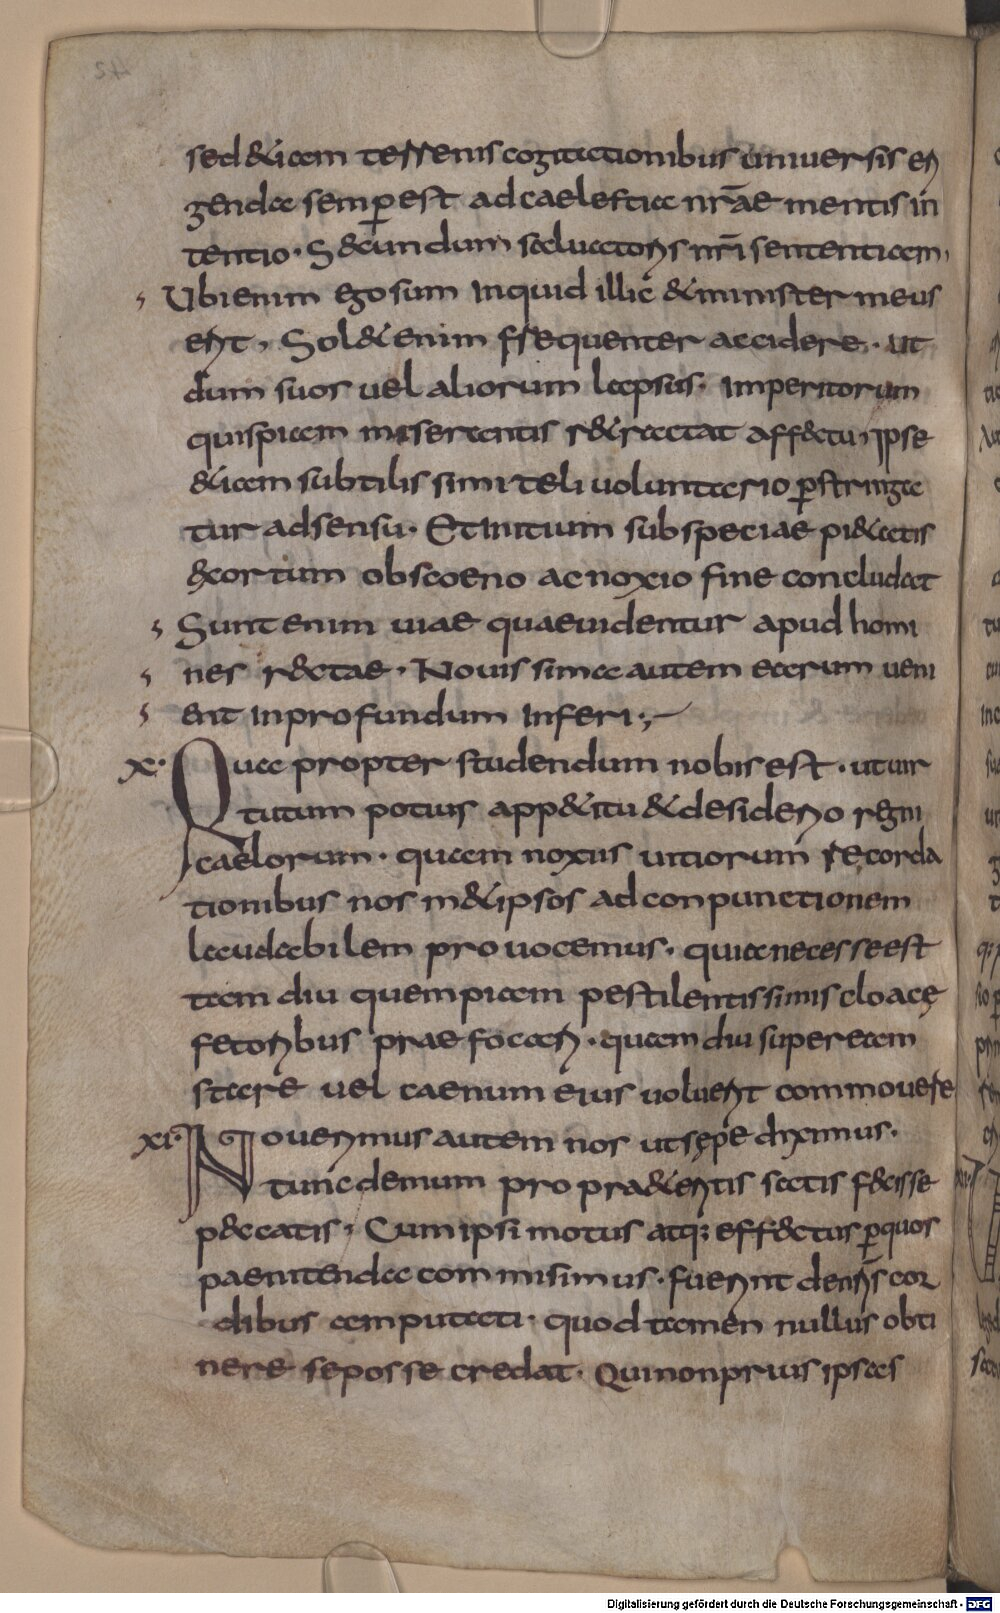 sed &iam terrenis cogitationibus uniuersis eri
genda semp̱ est ad caelestia nr̄ae mentis in
tentio· S&cundum saluatoris nr̄i sententiam,
Ubi enim ego sum inquid illic & minister meus
erit, Sol& enim frequenter accidere· ut
dum suos uel aliorum lapsus· imperitorum
quispiam miserantis r&ractat aff&tu ipse
&iam subtilissimi teli uoluntario p̱stringa
tur adsensu· Et initium sub speciae pi&atis
&ortum obscoeno ac noxio fine concludat
Sunt enim uiae quae uidentur apud homi
nes r&ctae· Nouissima autem earum ueni
ent in profundum inferi·,
x· Quapropter studendum nobis est· ut uir
tutum potius app&itu & desiderio regni
caelorum· quam noxiis uitiorum recorda
tionibus nosm&ipsos ad conpunctionem
laudabilem prouocemus· quia necesse est
tamdiu quempiam pestilentissimis cloacę
fetoribus praefocari· quamdiu super eam
stare uel caenum eius uoluerit commouere
xi· Nouerimus autem nos ut sępe diximus·
tunc demum pro pra&eritis satis f&cisse
p&ccatis· Cum ipsi motus atq; eff&ctus p̱ quos
paenitenda commisimus· fuerint de nr̄is cor
dibus amputati· quod tamen nullus obti
nere se posse credat· Qui non prius ipsas